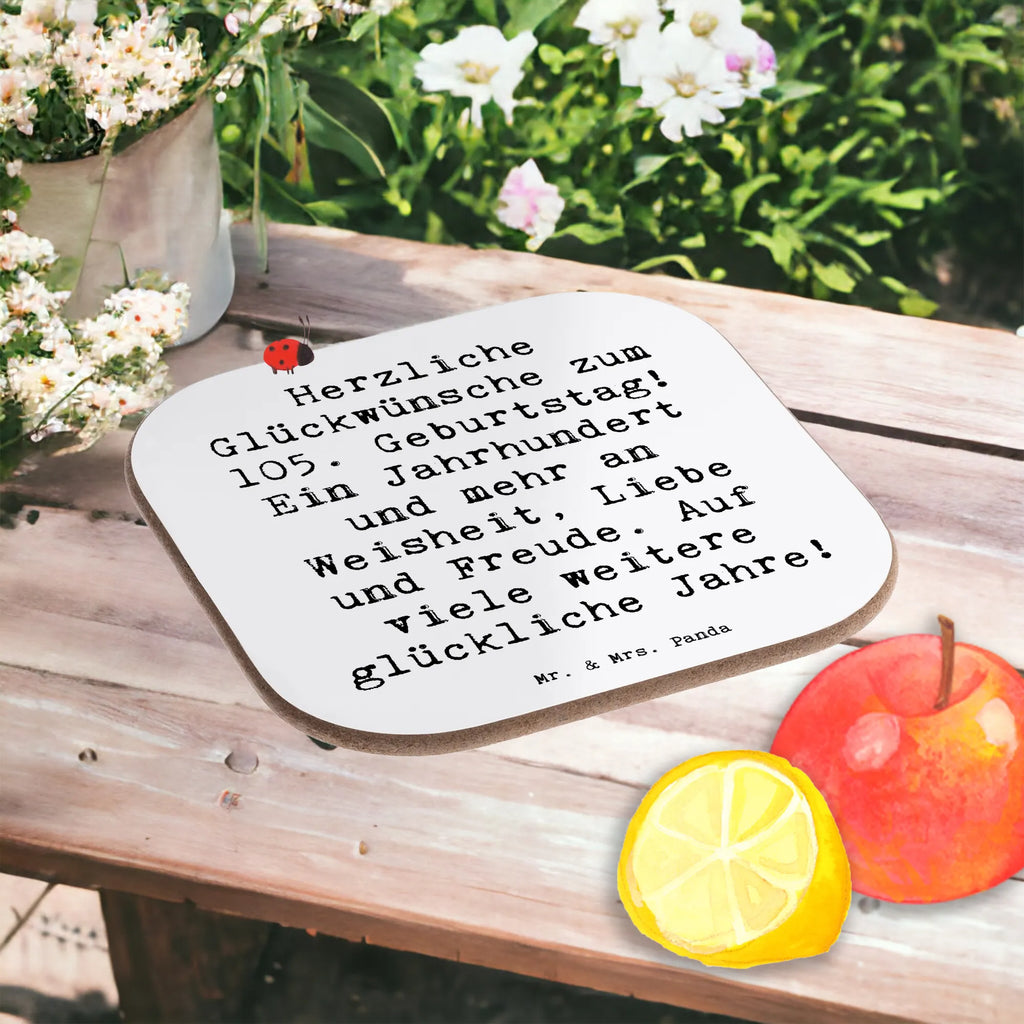 Herzliche
Glückwünsche zum
105. Geburtstag!
Ein Jahrhundert
und mehr an
Weisheit, Liebe
und Freude. Auf
viele weitere
glückliche Jahre!
Mr. & Mrs. Panda